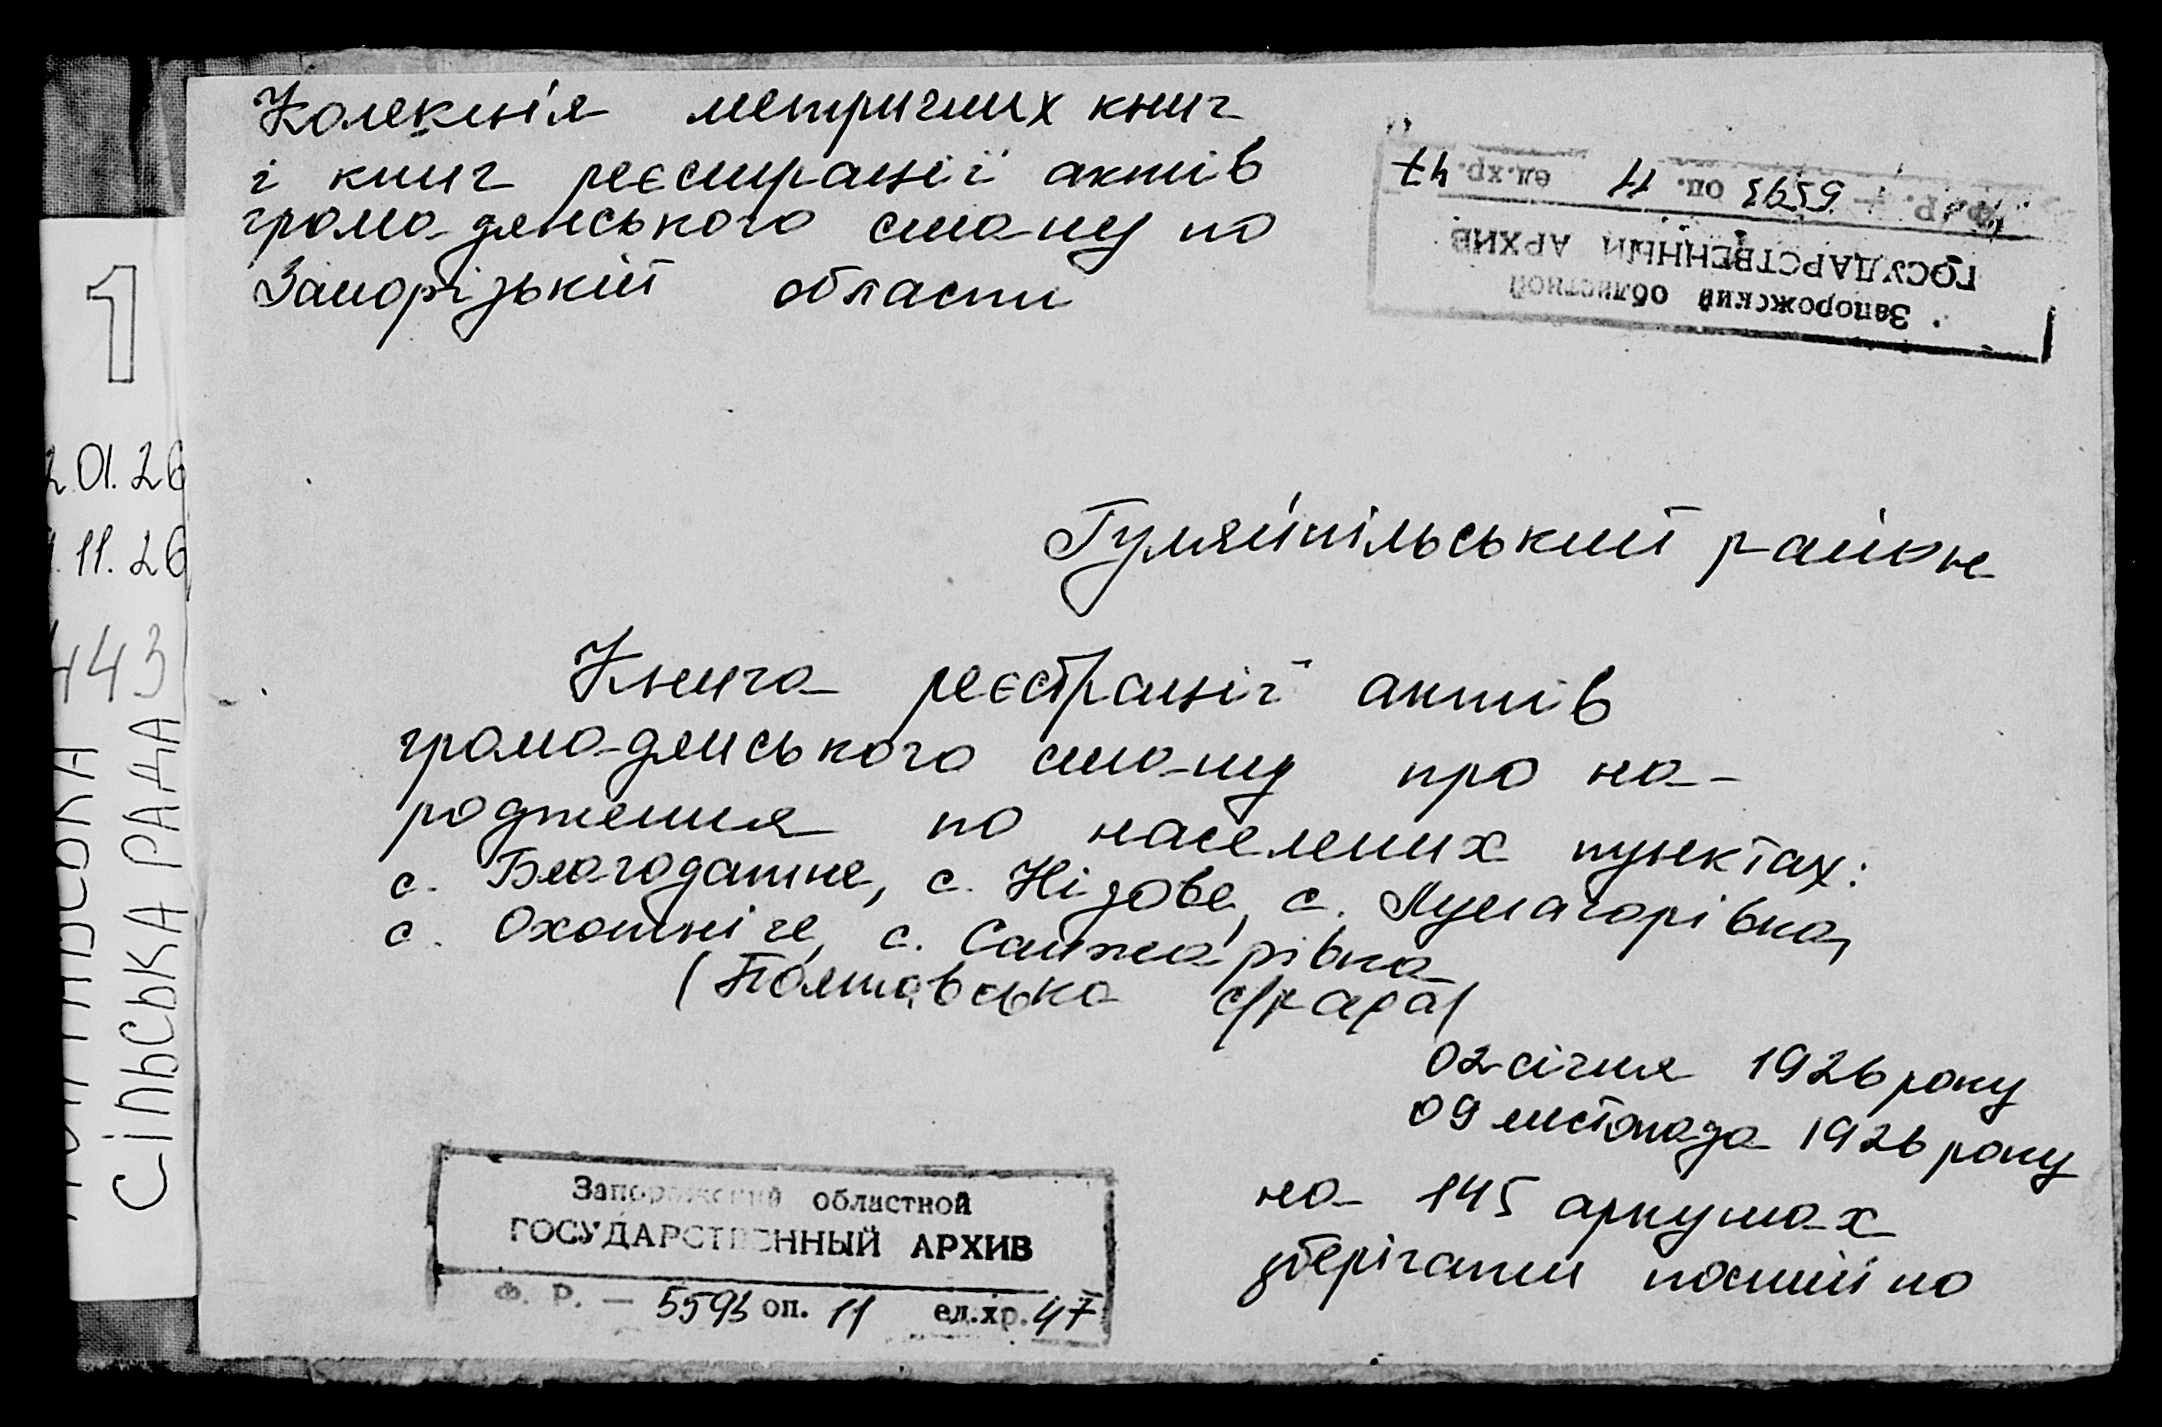 Колекція метричних книг
і книг реєстрації актів
громадянського стану по
Запорізькій області
Ф. Р. — 5593 оп. 11 ед.хр. 47
ГОСУДАРСТВЕННЫЙ АРХИВ
Запорожский областной
1
01.26
11.26
443
СІЛЬСЬКА РАДА
Гуляйпільський район
Книга реєстрації актів
громадянського стану про на-
родження по населених пунктах:
с. Благодатне, с. Нізове, с. Лушагорівка,
с. Охотніче, с. Санжарівка
(Полтавська с/рада)
02 січня 1926 року
09 листопада 1926 року
на 145 аркушах
зберігати постійно
Запорожский областной
ГОСУДАРСТВЕННЫЙ АРХИВ
Ф. Р. — 5593 оп. 11 ед.хр. 47